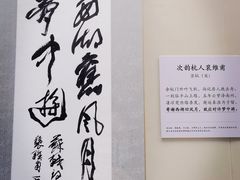 西湖舊風月
夢中遊
蘇軾詩
次韵杭人裴维甫
苏轼(宋)
余杭门外叶飞秋,尚记居人挽去舟。
一别临平山上塔,五年云梦泽南州。
凄凉楚些缘吾发,邂逅秦淮为子留。
寄谢西湖旧风月,故应时许梦中游。